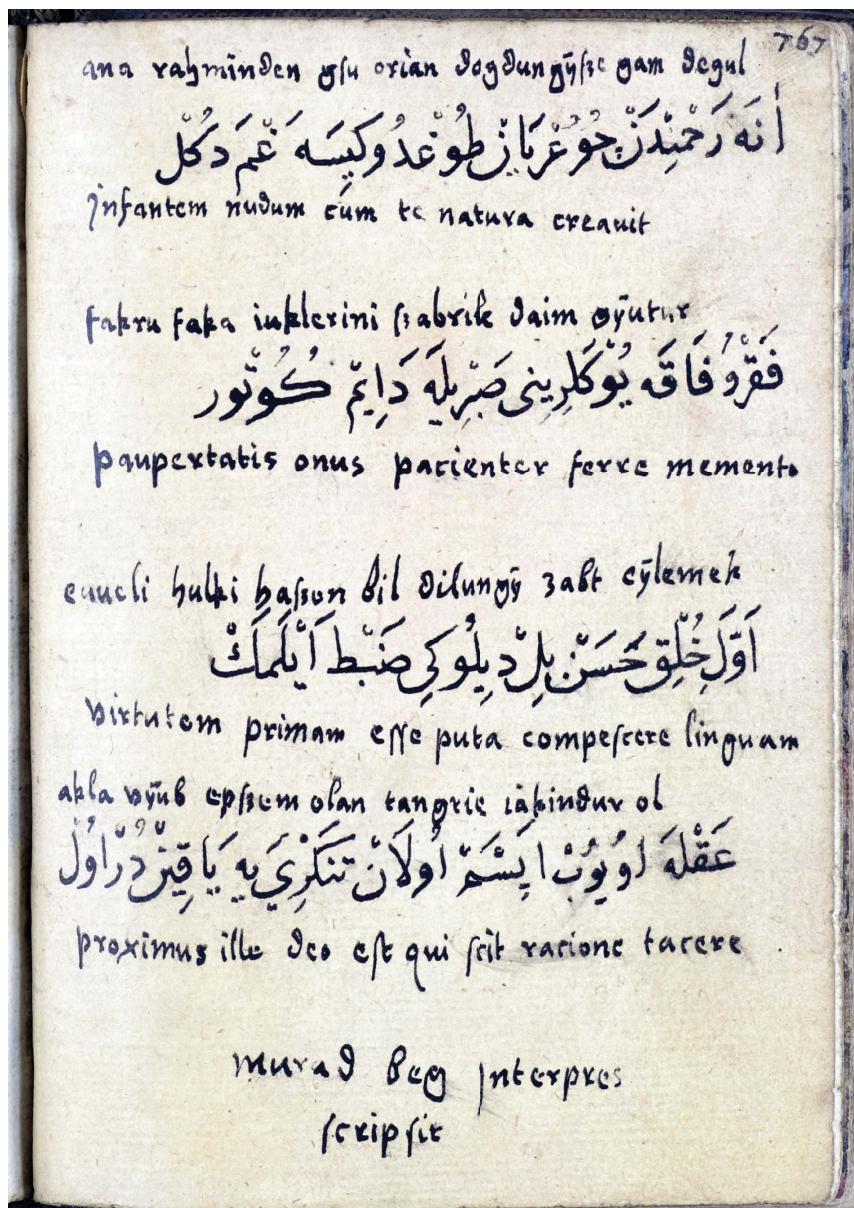 767
ana rahminden gsu orian dogdungÿse gam degul
أَنَه رَحْمِنِدَنْ چُو عُرْيَانْ طُوغْدُوكِيسَه غَمْ دَكُل
Infantem nudum cum te natura creauit
fakru faka iuklerini sabrile daim gÿutur
فَقْرُو فَاقَه يُوكَلرِينى صَبْرِيلَه دَايِمْ كُوتُور
paupertatis onus pacienter ferre memento
euueli hulki hasson bil dilungÿ zabt eÿlemek
اَوَّلِ خُلْقِ حَسَنْ بِلْ دِيلُوكِى ضَبْط اَيْلَمَكْ
virtutem primam esse puta compescere linguam
akla vÿub epsem olan tangrie iakindur ol
عَقْلَه اُويُوبْ اِپْسَمْ اُولَانْ تَنَكْرِيَ يه يَاقِينْدُرْ اُولْ
proximus ille deo est qui scit racione tacere
murad beg Interpres
scripsit